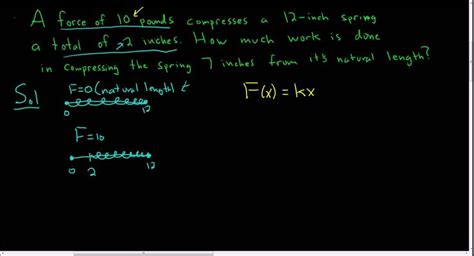 A force of 10 pounds compresses a 12-inch spring
a total of 2 inches. How much work is done
in compressing the spring 7 inches from it's natural length?
Sol F=0 (natural length) F(x) = kx
0 12
F=10
0 2 12